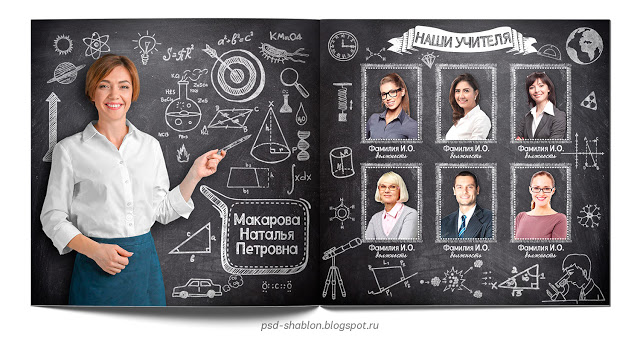 НАШИ УЧИТЕЛЯ
KMnO₄
aⁿ+bⁿ=cⁿ
H₂S
HCl
NaBr
Макарова
Наталья
Петровна
Фамилия И.О.
должность
Фамилия И.О.
должность
Фамилия И.О.
должность
Фамилия И.О.
должность
Фамилия И.О.
должность
Фамилия И.О.
должность
∫xdx
psd-shablon.blogspot.ru